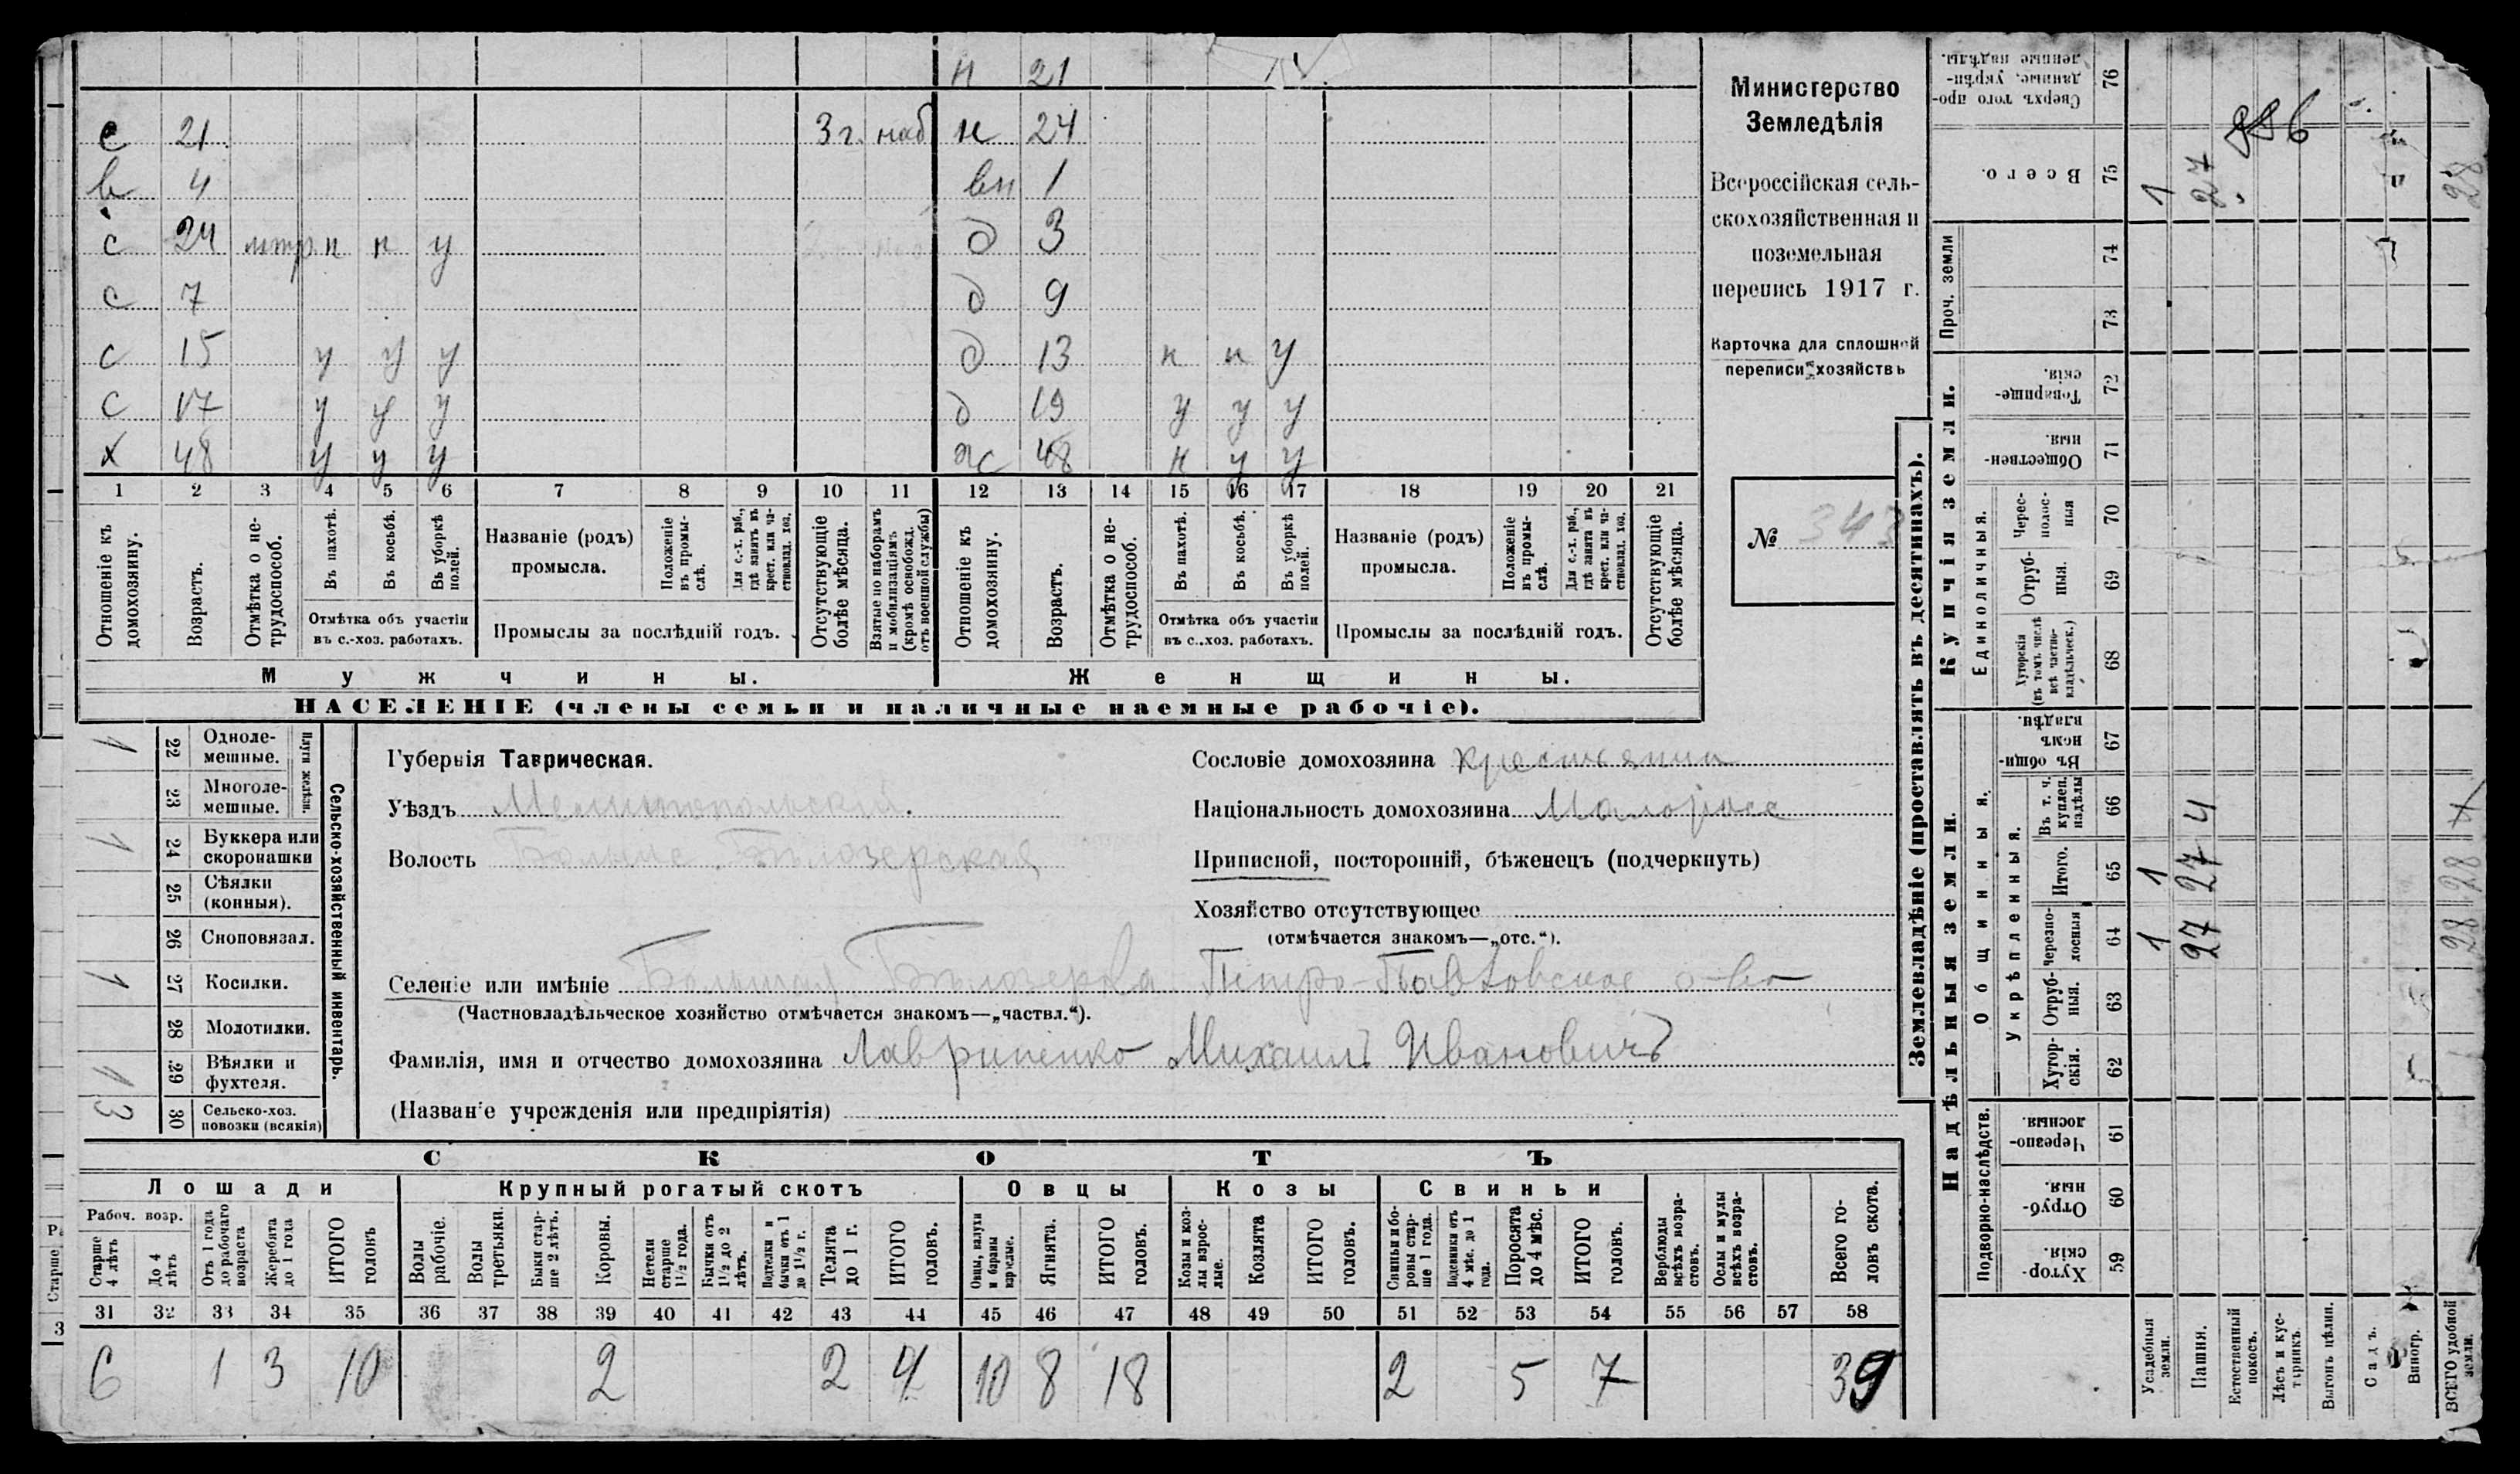 н 21
с 21 3 г. наб н 24
в 4 вн 1
с 24 н н у д 3
с 7 д 9
с 15 у у у д 13 н н у
с 17 у у у д 19 у у у
х 48 у у у ж 48 н у у
1 2 3 4 5 6 7 8 9 10 11 12 13 14 15 16 17 18 19 20 21
Отношеніе къ домохозяину.
Возрастъ.
Отмѣтка о не-трудоспособ.
Въ пахотѣ.
Въ косьбѣ.
Въ уборкѣ полей.
Отмѣтка объ участіи въ с.-хоз. работахъ.
Названіе (родъ) промысла.
Положеніе въ промы-слѣ.
Для с.-х. раб., гдѣ занятъ въ крест. или ча-стновлад. хоз.
Промыслы за послѣдній годъ.
Отсутствующіе болѣе мѣсяца.
Взятые по наборамъ и мобилизаціямъ (кромѣ освобожд. отъ военной службы)
Отношеніе къ домохозяину.
Возрастъ.
Отмѣтка о не-трудоспособ.
Въ пахотѣ.
Въ косьбѣ.
Въ уборкѣ полей.
Отмѣтка объ участіи въ с.-хоз. работахъ.
Названіе (родъ) промысла.
Положеніе въ промы-слѣ.
Для с.-х. раб., гдѣ занята въ крест. или ча-стновлад. хоз.
Промыслы за послѣдній годъ.
Отсутствующіе болѣе мѣсяца.
Мужчины.
Женщины.
НАСЕЛЕНІЕ (члены семьи и наличные наемные рабочіе).
Министерство
Земледѣлія
Всероссійская сель-
скохозяйственная и
поземельная
перепись 1917 г.
Карточка для сплошной
переписи хозяйствъ
№ 343
1 22 Одноле-мешные.
23 Многоле-мешные.
Плуги желѣзн.
1 24 Буккера или скоропашки
25 Сѣялки (конныя).
26 Сноповязал.
1 27 Косилки.
28 Молотилки.
1 29 Вѣялки и фухтеля.
3 30 Сельско-хоз. повозки (всякія)
Сельско-хозяйственный инвентарь.
Губернія Таврическая.
Уѣздъ Мелитопольскій.
Волость Больше-Бѣлозерская
Сословіе домохозяина крестьянин
Національность домохозяина Малоросс
Приписной, посторонній, бѣженецъ (подчеркнуть)
Хозяйство отсутствующее
(отмѣчается знакомъ—„отс.“).
Селеніе или имѣніе Большая Бѣлозерка Петро-Павловское о-во
(Частновладѣльческое хозяйство отмѣчается знакомъ—„частвл.“).
Фамилія, имя и отчество домохозяина Лавриненко Михаилъ Ивановичъ
(Названіе учрежденія или предпріятія)
СКОТЪ
Лошади
Крупный рогатый скотъ
Овцы
Козы
Свиньи
Рабоч. возр.
Старше 4 лѣтъ
До 4 лѣтъ
Отъ 1 года до рабочаго возраста
Жеребята до 1 года
ИТОГО головъ
Волы рабочіе.
Волы третьяки.
Быки стар-ше 2 лѣтъ.
Коровы.
Нетели старше 1½ года.
Бычки отъ 1½ до 2 лѣтъ.
Подтелки и бычки отъ 1 до 1½ г.
Телята до 1 г.
ИТОГО головъ.
Овцы, валухи и бараны взрослые.
Ягнята.
ИТОГО головъ.
Козы и коз-лы взрос-лые.
Козлята
ИТОГО головъ.
Свиньи и бо-ровы стар-ше 1 года.
Подсвинки отъ 4 мѣс. до 1 года.
Поросята до 4 мѣс.
ИТОГО головъ.
Верблюды всѣхъ возра-стовъ.
Ослы и мулы всѣхъ возра-стовъ.
Всего го-ловъ скота.
31 32 33 34 35 36 37 38 39 40 41 42 43 44 45 46 47 48 49 50 51 52 53 54 55 56 57 58
6 1 3 10 2 2 4 10 8 18 2 5 7 39
Старше
3
Землевладѣніе (проставлять въ десятинахъ).
Надѣльныя земли.
Купчія земли.
Проч. земли
Подворно-наслѣдств.
Общинныя.
Укрѣпленныя.
Единоличныя.
Сверхъ того про-данные, укрѣп-ленные надѣлы. 76
Всего. 75 1 27 28
886
74
73
Товарище-скія. 72
Обществен-ныя. 71
Черес-полос-ныя 70
Отруб-ныя. 69
Хуторскія (въ томъ числѣ всѣ частно-владѣльческ.) 68
Въ общин-номъ владѣн. 67
Въ т. ч. куплен. надѣлы 66 4
Итого. 65 1 27 28
Черезпо-лосныя 64 1 27 28
Отруб-ныя. 63
Хутор-скія. 62
Черезпо-лосныя 61
Отруб-ныя. 60
Хутор-скія. 59
Усадебныя земли.
Пашня.
Естественный покосъ.
Лѣсъ и кус-тарникъ.
Выгонъ цѣлин.
Садъ.
Виногр.
ВСЕГО удобной земли.